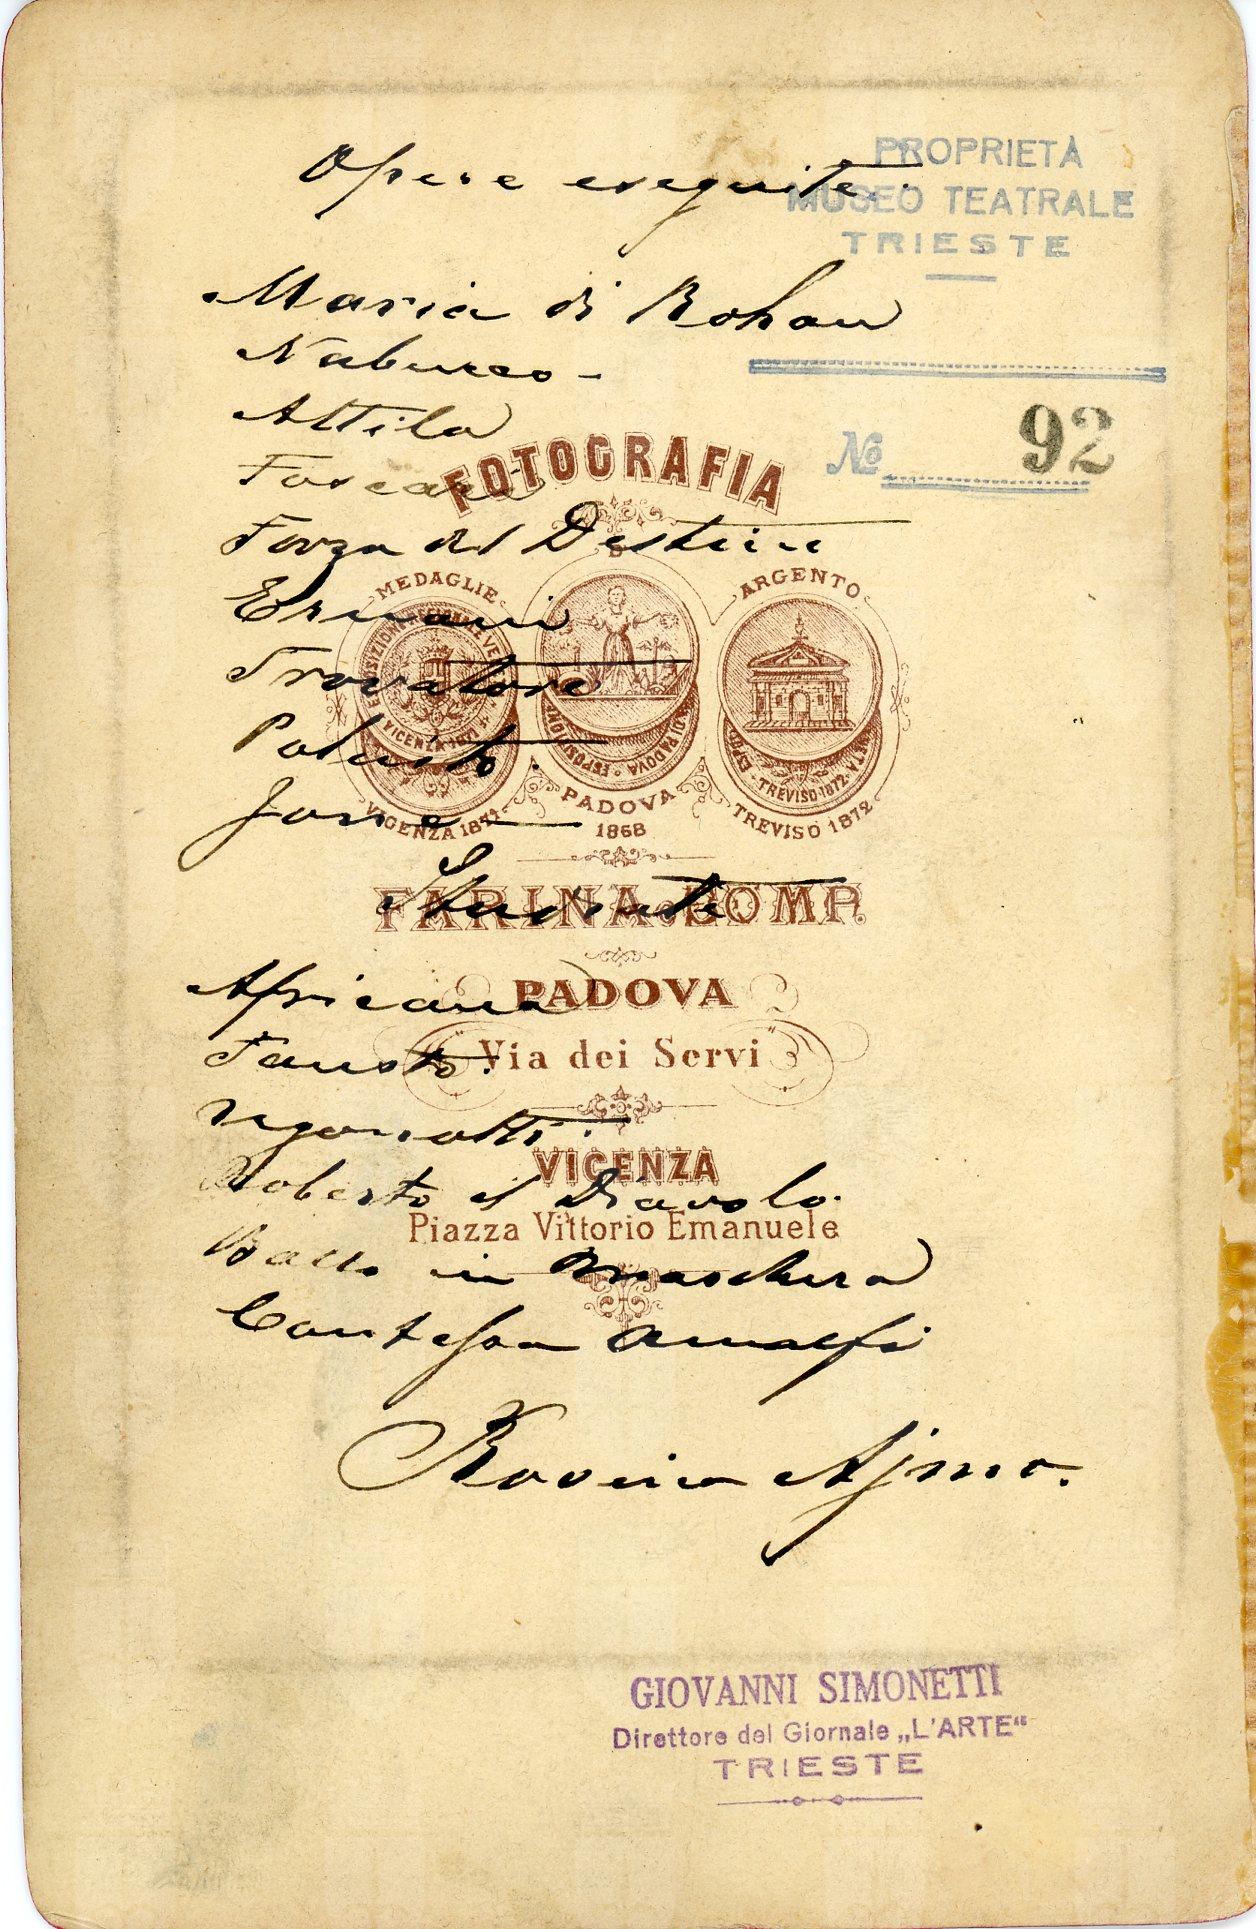 Opere eseguite.
PROPRIETÀ
MUSEO TEATRALE
TRIESTE
Maria di Rohan
Nabucco -
Attila
No 92
Foscari
FOTOGRAFIA
Forza del Destino
MEDAGLIE D' ARGENTO
Ernani
Trovatore
Poliuto.
VICENZA 1871
PADOVA
1868
TREVISO 1872
Jone
Studiate
FARINA & COMP.
Africana
PADOVA
Fausto.
Via dei Servi
VICENZA
Roberto il Diavolo.
Piazza Vittorio Emanuele
Ballo in Maschera
Contessa Amalfi
Ajmo.
GIOVANNI SIMONETTI
Direttore del Giornale „L'ARTE“
TRIESTE